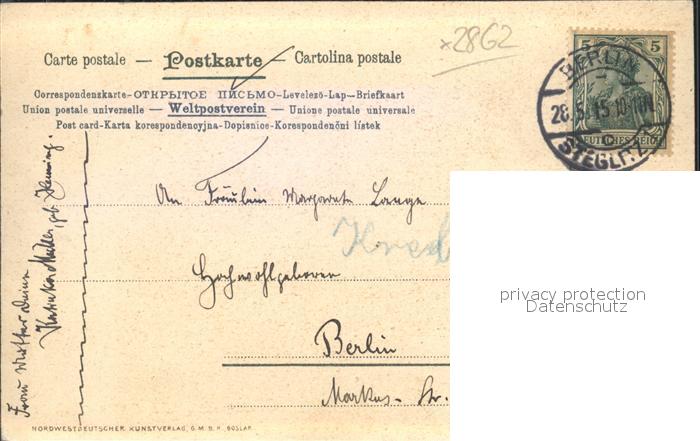 Carte postale — Postkarte — Cartolina postale
Correspondenzkarte-ОТКРЫТОЕ ПИСЬМО-Levelező-Lap-Briefkaart
Union postale universelle — Weltpostverein — Unione postale universale
Post card-Karta korespondencyjna-Dopisnice-Korespondenční lístek
×2862
5 5
DEUTSCHES REICH
BERLIN
28.5.15
STEGLITZ
An Fräulein Margarete Lange
Hochwohlgeboren
Berlin
Markus-Str.
Frau
geb. Henning.
privacy protection
Datenschutz
NORDWESTDEUTSCHER KUNSTVERLAG, G.M.B.H., GOSLAR